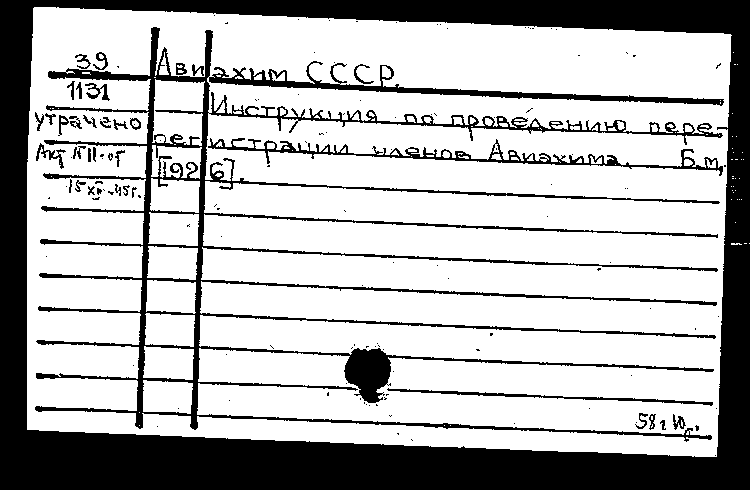 39
1131
утрачено
Акт № 11 от
15 XI-45г.
Авиахим СССР.
Инструкция по проведению пере-
регистрации членов Авиахима. Б.м,
[1926].
58г